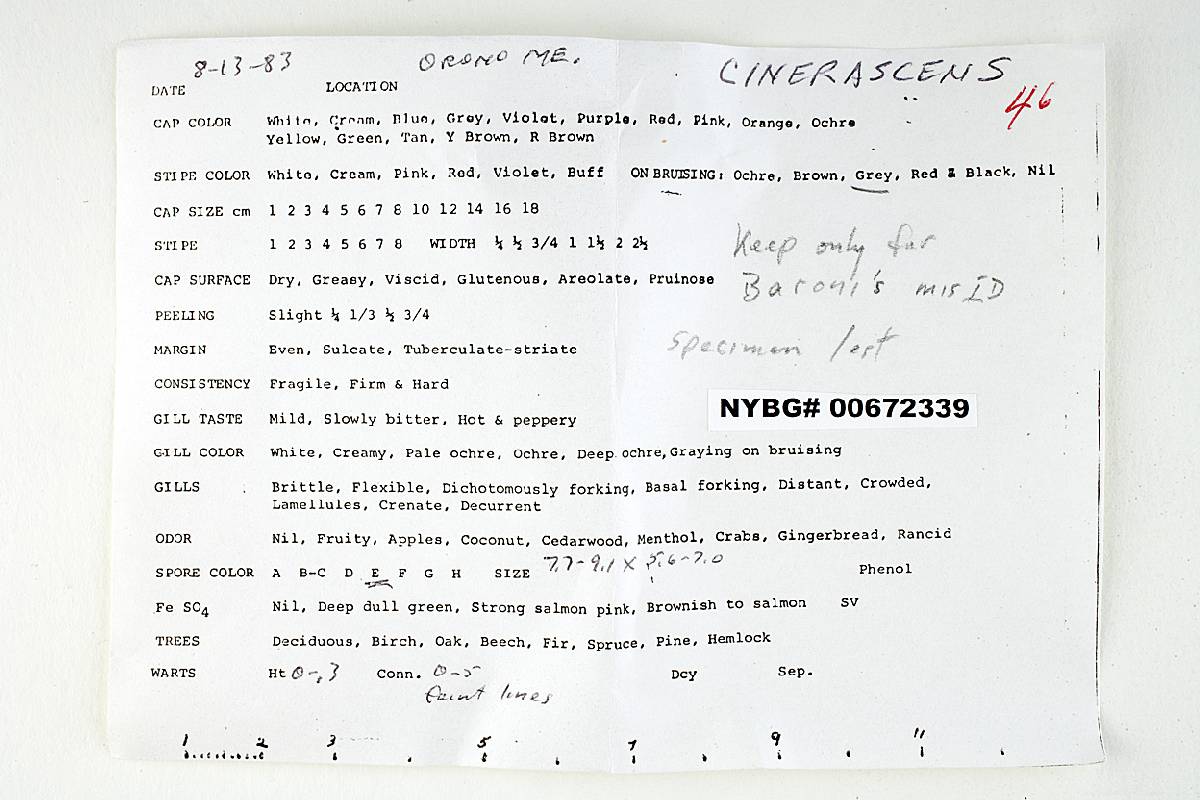 8-13-83 ORONO ME. CINERASCENS
DATE LOCATION 46
CAP COLOR White, Cream, Blue, Grey, Violet, Purple, Red, Pink, Orange, Ochre
Yellow, Green, Tan, Y Brown, R Brown
STIPE COLOR White, Cream, Pink, Red, Violet, Buff ON BRUISING: Ochre, Brown, Grey, Red & Black, Nil
CAP SIZE cm 1 2 3 4 5 6 7 8 10 12 14 16 18
STIPE 1 2 3 4 5 6 7 8 WIDTH ¼ ½ 3/4 1 1½ 2 2½
Keep only for
CAP SURFACE Dry, Greasy, Viscid, Glutenous, Areolate, Pruinose
Baroni's misID
PEELING Slight ¼ 1/3 ½ 3/4
MARGIN Even, Sulcate, Tuberculate-striate
Specimen lost
CONSISTENCY Fragile, Firm & Hard
NYBG# 00672339
GILL TASTE Mild, Slowly bitter, Hot & peppery
GILL COLOR White, Creamy, Pale ochre, Ochre, Deep ochre, Graying on bruising
GILLS Brittle, Flexible, Dichotomously forking, Basal forking, Distant, Crowded,
Lamellules, Crenate, Decurrent
ODOR Nil, Fruity, Apples, Coconut, Cedarwood, Menthol, Crabs, Gingerbread, Rancid
SPORE COLOR A B-C D E F G H SIZE 7.7-9.1 X 5.6-7.0 Phenol
Fe SO4 Nil, Deep dull green, Strong salmon pink, Brownish to salmon SV
TREES Deciduous, Birch, Oak, Beech, Fir, Spruce, Pine, Hemlock
WARTS Ht 0-.3 Conn. 0-5 Dcy Sep.
faint lines
1 2 3 5 7 9 11